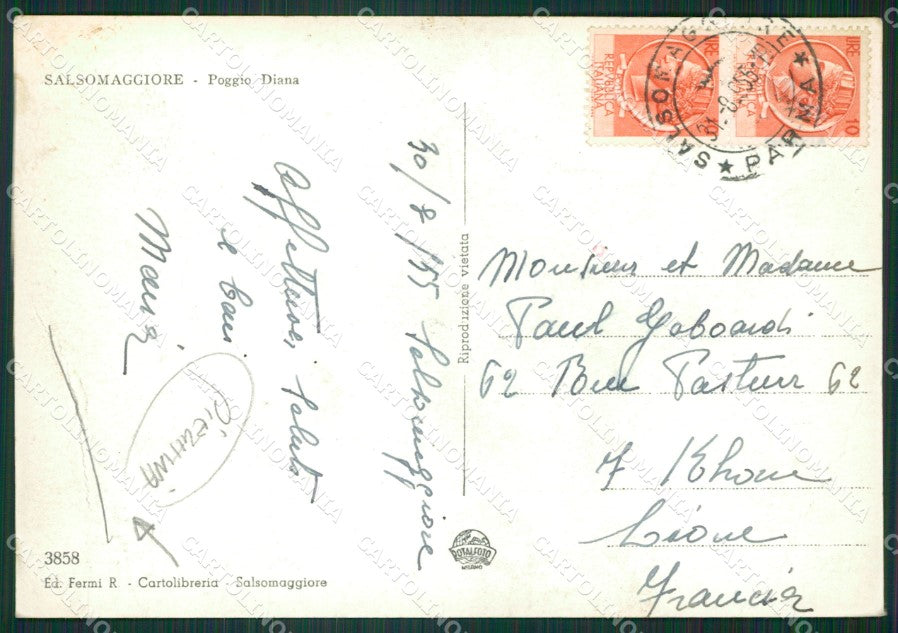 SALSOMAGGIORE - Poggio Diana
30/8/55 Salsomaggiore
Affettuosi saluti
e baci
Maria
3858
Ed. Fermi R. - Cartolibreria - Salsomaggiore
Riproduzione vietata
ROTALFOTO
MILANO
LIRE
REPUBBLICA
ITALIANA
LIRE 10
SALSOMAGGIORE
PARMA
Monsieur et Madame
Paul Gaboardi
62 Rue Pasteur 62
7 Rhone
Lione
Francia
CARTOLINOMANIA